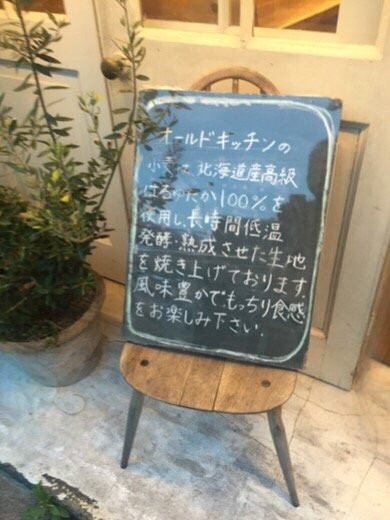 オールドキッチンの
小麦は、北海道産高級
はるゆたか100%を
使用し、長時間低温
発酵・熟成させた生地
を焼き上げております。
風味豊かでもっちり食感
をお楽しみ下さい。